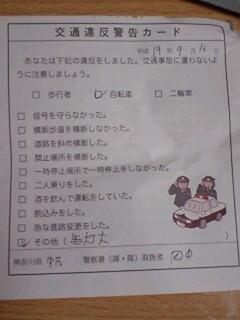 交通違反警告カード
平成 19年 9月 16日
あなたは下記の違反をしました。交通事故に遭わないよ
うに注意しましょう。
□ 歩行者 ☑ 自転車 □ 二輪車
□ 信号を守らなかった。
□ 横断歩道を横断しなかった。
□ 道路を斜め横断した。
□ 禁止場所を横断した。
□ 一時停止場所で一時停止をしなかった。
□ 二人乗りをした。
□ 酒を飲んで運転をしていた。
□ 割込みをした。
□ 急な進路変更をした。
☑ その他（無灯火
神奈川県 警察署（課・隊）取扱者 田中